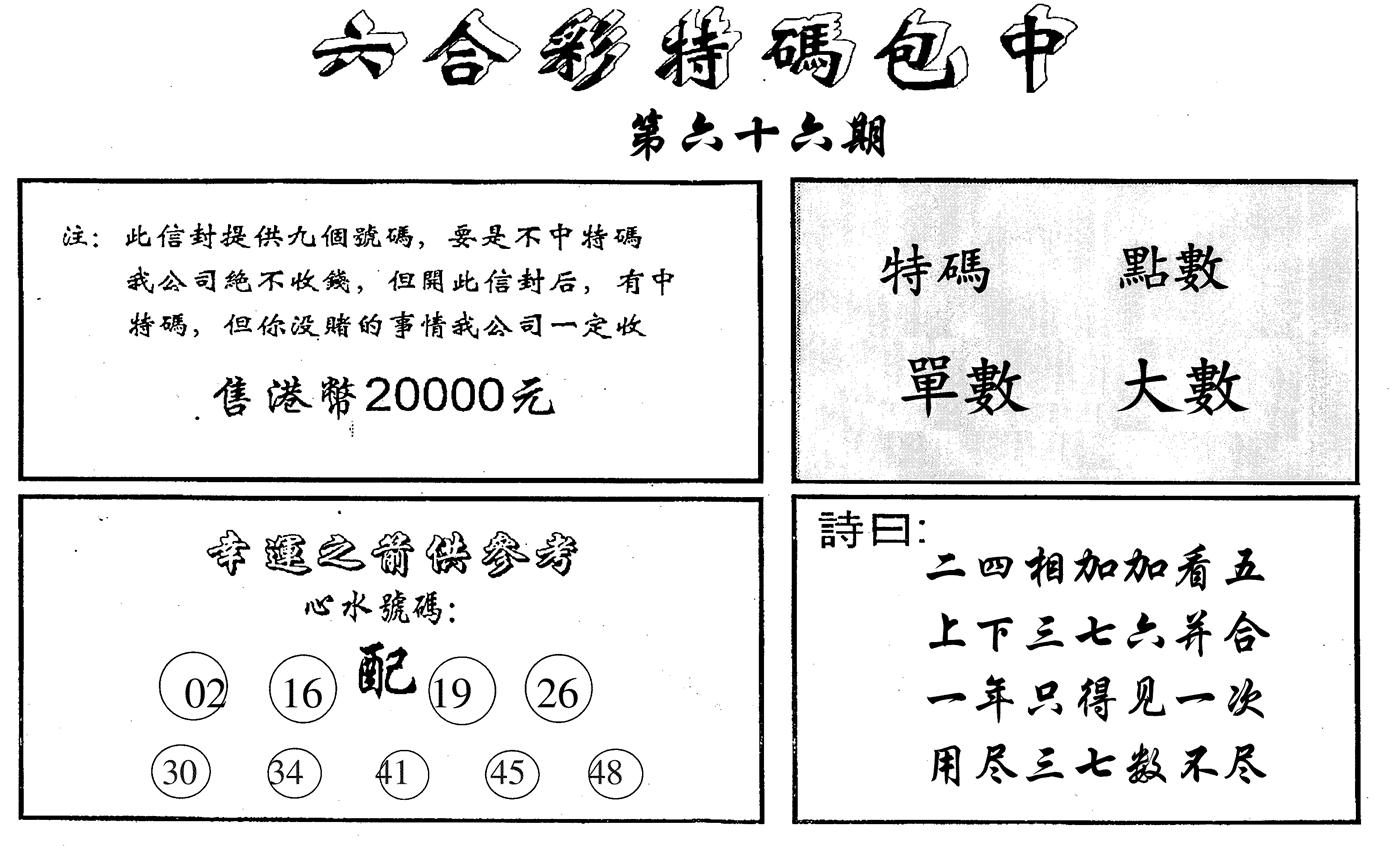 六合彩特碼包中
第六十六期
注：此信封提供九個號碼，要是不中特碼
我公司絶不收錢，但開此信封后，有中
特碼，但你没賭的事情我公司一定收
售港幣20000元
特碼 點數
單數 大數
幸運之箭供參考
心水號碼：
02 16 配 19 26
30 34 41 45 48
詩曰：
二四相加加看五
上下三七六并合
一年只得见一次
用尽三七数不尽